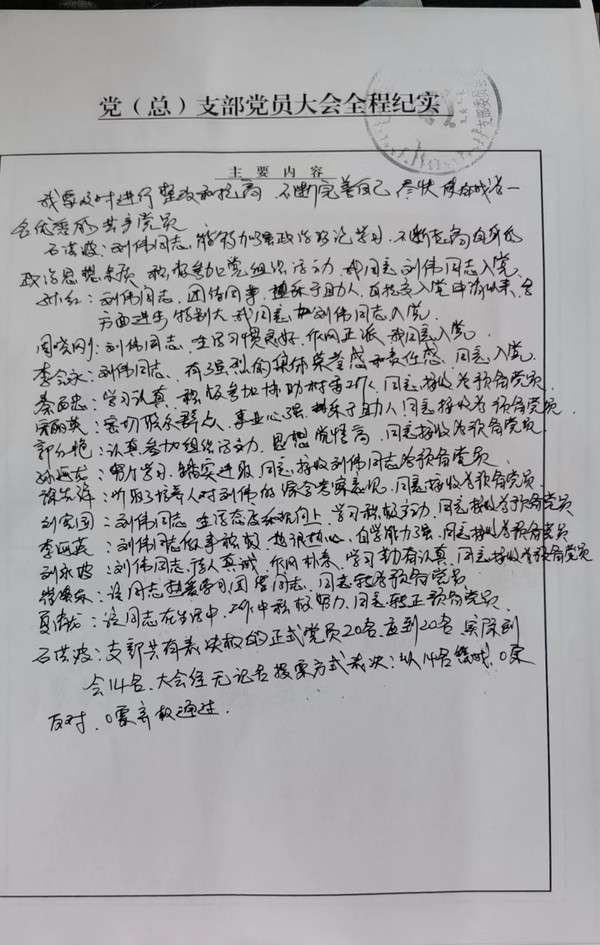 党（总）支部党员大会全程纪实
支部委员会
主要内容
我要及时进行整改和提高，不断完善自己，尽快使自己成为一
名优秀的共产党员
石洪波：刘伟同志，能努力加强政治理论学习，不断提高自身的
政治思想素质，积极参加党组织活动，我同意刘伟同志入党。
孙红：刘伟同志，团结同事，乐于助人，自提交入党申请以来，各
方面进步特别大，我同意刘伟同志入党。
周晓刚：刘伟同志，生活习惯良好，作风正派，我同意入党。
李会永：刘伟同志，有强烈的集体荣誉感和责任感，同意入党。
忠：学习认真，积极参加协助村工作，同意接收为预备党员。
丽英：密切联系群众，事业心强，乐于助人！同意接收为预备党员
郭艳：认真参加组织活动，思想觉悟高，同意接收为预备党员
孙：努力学习，踏实进取，同意接收刘伟同志为预备党员。
：听取了培养人对刘伟的综合考察意见，同意接收为预备党员。
刘国：刘伟同志生活态度积极向上，学习积极主动，同意接收为预备党员
李英：刘伟同志做事积极，热心，自学能力强，同意接收为预备党员
刘永波：刘伟同志待人真诚，作风朴素，学习勤奋认真，同意接收为预备党员
：该同志热爱学习，团结同志，同意转为预备党员
夏：该同志在生活中，工作中积极努力，同意转正预备党员。
石洪波：支部共有表决权的正式党员20名，应到20名，实际到
会14名，大会经无记名投票方式表决：以14名赞成，0票
反对，0票弃权通过。